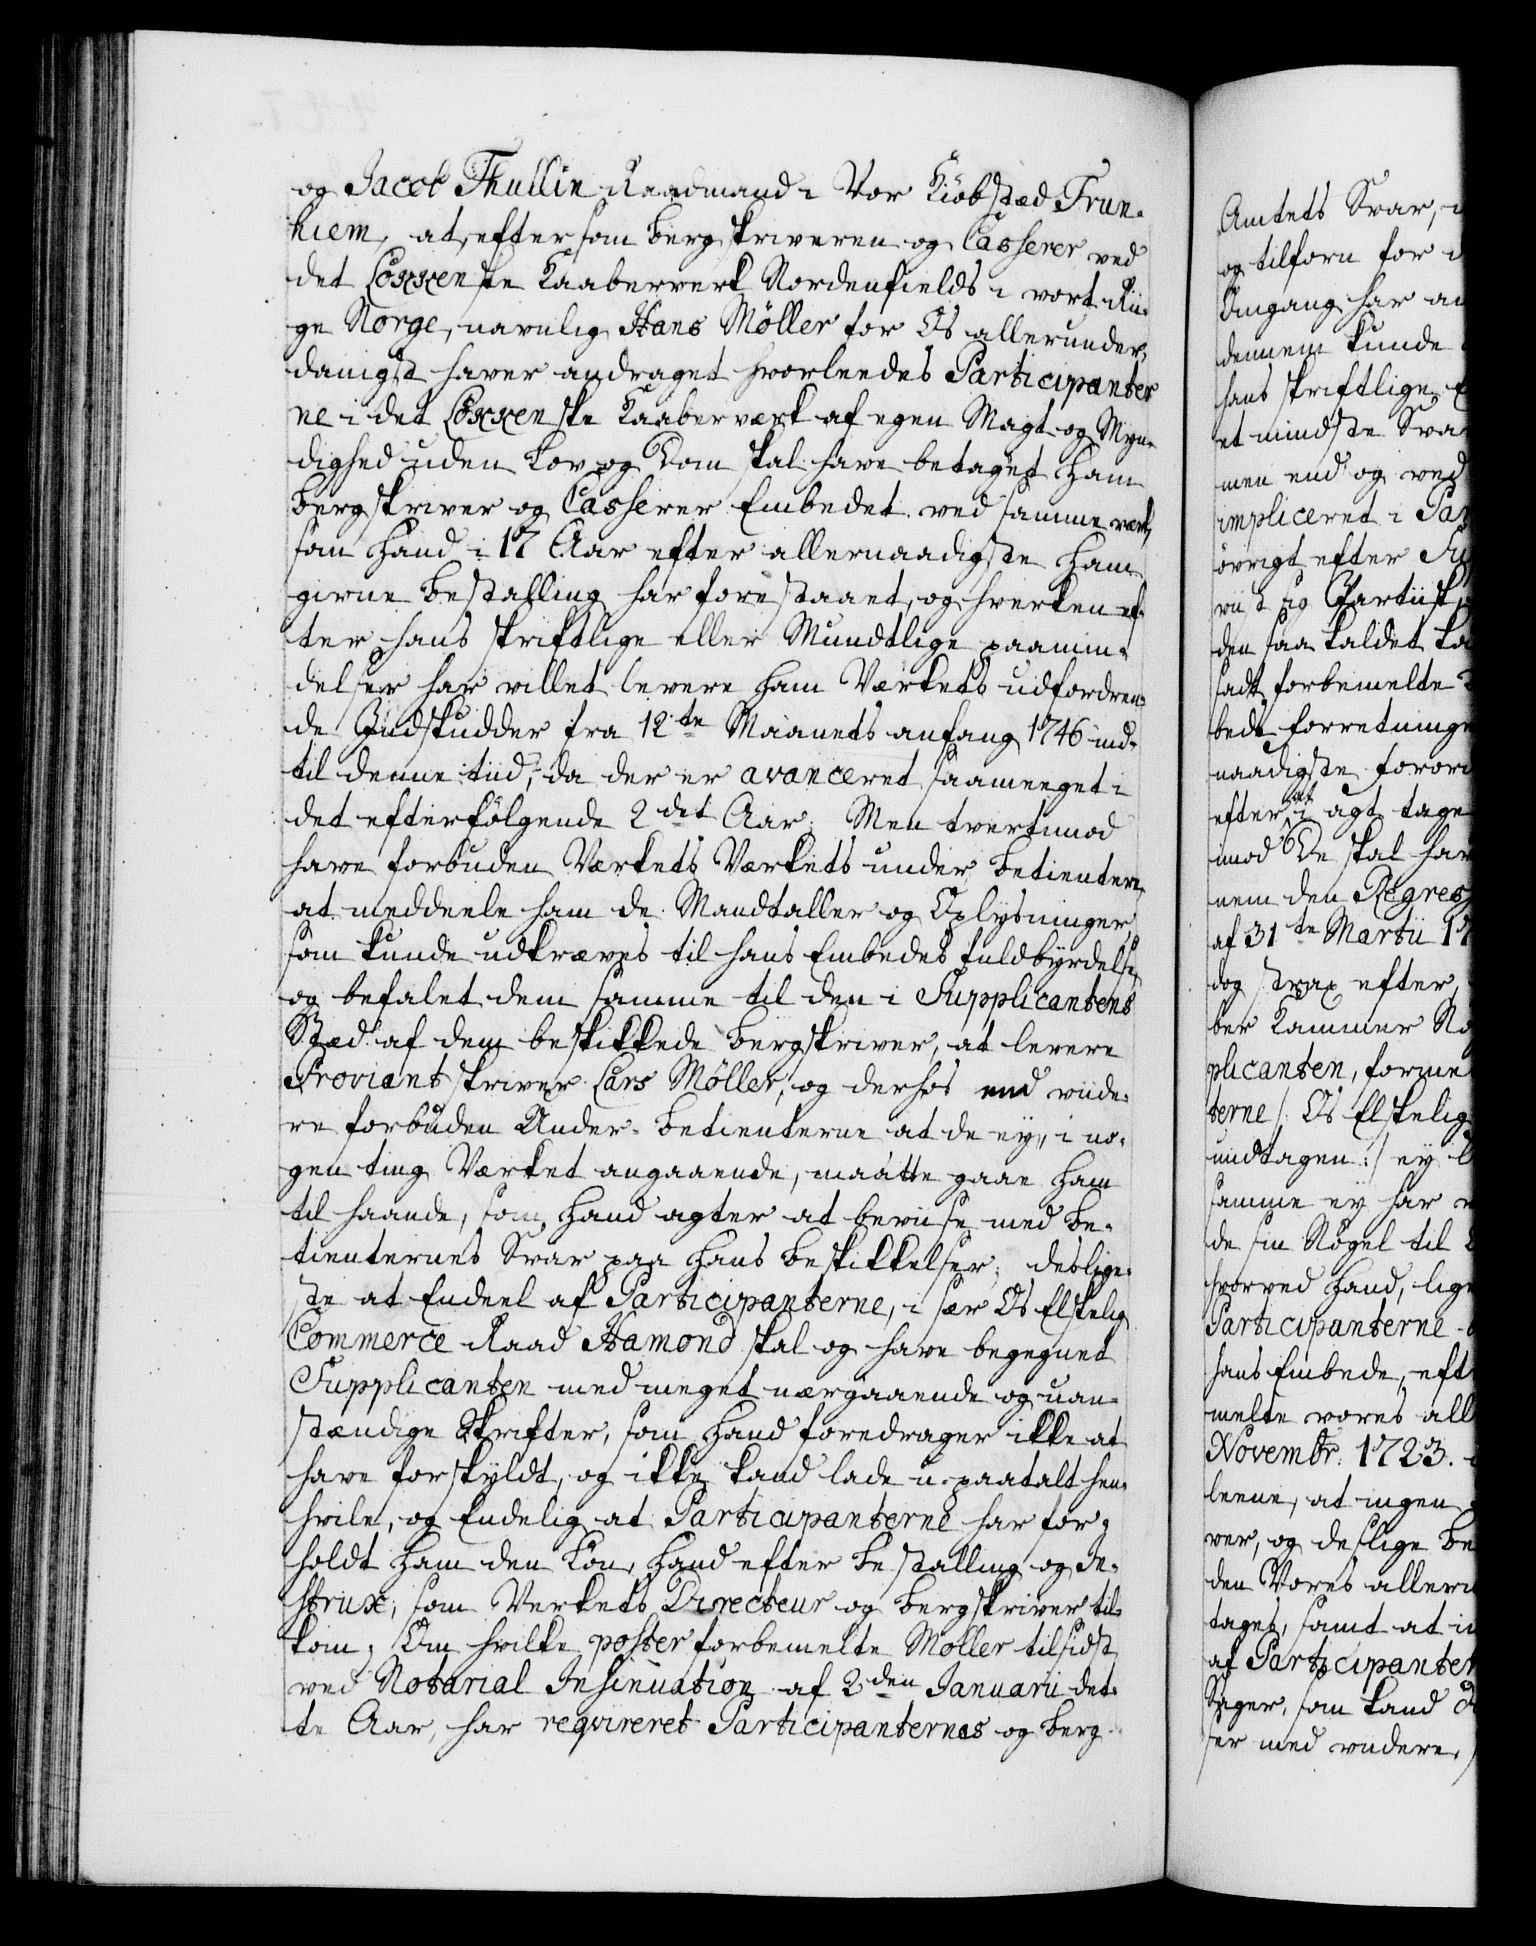 og Jacob Thullin Raadmand i Vor Kiöbstæd Trun-
hiem, at, eftersom Bergskriveren og Casserer ved
det Løkkenske Kaaberverk Nordenfields i vort Rii-
ge Norge, navnlig Hans Möller for Os allerunder-
danigst haver andraget hvorleedes Participanter
ne i det Løkkenske Kaaberværk af egen Magt og Myn-
dighed uden Lov og Dom skal have betaget ham
Bergskriver og Casserer Embedet ved samme værk,
som hand i 17 Aar efter allernaadigste ham
givne Bestalling har forestaaet, og hverken ef-
ter hans skriftlige eller Mundtlige paamin-
delser har villet levere ham Værkets udfordren-
de Indskudder fra 12te Maanets anfang 1746 ind-
til denne tiid, da der er avanceret saameeget i
det efterfølgende 2det Aar; Men tvertimod
have forbuden Værkets Værkets under betientere,
at meddeele ham de Mandtaller og Oplysninger,
som kunde udkræves til hans Embedes fuldbyrdelse,
og befalet dem samme til den i Supplicantens
Stæd af dem beskikkede Bergskriver, at levere
Proviantskriver Lars Möller, og derhos end viide-
re forbuden Under-betienterne at de ey, i no-
gen ting Værket angaaende, maatte gaae ham
til haande, som hand agter at beviise med be-
tienternes Svar paa hans beskikkelser; deslige-
ste at Endeel af Participanterne, i sær Os Elskelig
Commerce Raad Hamond skal og have begegnet
Supplicanten med meget nærgaaende og uan-
stændige Skrifter, som hand foredrager ikke at
have forskyldt, og ikke kand lade u-paatalt hen-
hvile, og Endelig at Participanterne har for-
holdt ham den Lön, hand efter Bestalling og In-
strux, som Verkets Directeur og Bergskriver til-
kom; Om hvilke poster forbemelte Möller tilsidst
ved Notarial Insinuation af 2den Januarii det-
te Aar, har reqvireret Participanternes og Berg-
Amtets Svar,
og tilforn for
Omgang har
dennem kunde
hans skriftlige
et mindste Svar
men end og ved
impliceret i
øvrigt efter
viist sig Partiisk
den saa kaldet
sadt forbemelte
bedt forretninge
naadigste
efter at i agt tage
imod De skal hav
nem den Regres
af 31te Martii 17
dog strax efter,
ber Kammer
plicanten, forme
terne /: Os Elskelig
undtagen :/ ey
samme ey har
de sin Nögel til
hvorved hand, lige
Participanterne
hans Embede, eft
melte vores all
Novembr: 1723.
leene, at ingen
ver, og deslige
den Vores allern
tages, samt at
af Participanter
Sager, som kand
ser med viidere,